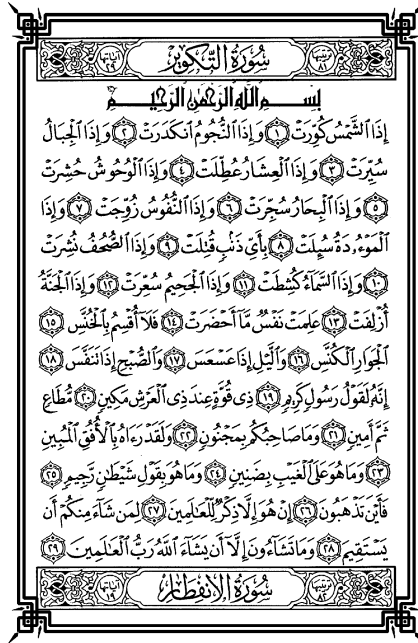 ترتيبها ٨١ سُورَةُ التَّكْوِيرِ آياتها ٢٩
بِسْمِ اللَّهِ الرَّحْمَٰنِ الرَّحِيمِ
إِذَا الشَّمْسُ كُوِّرَتْ ١ وَإِذَا النُّجُومُ انكَدَرَتْ ٢ وَإِذَا الْجِبَالُ
سُيِّرَتْ ٣ وَإِذَا الْعِشَارُ عُطِّلَتْ ٤ وَإِذَا الْوُحُوشُ حُشِرَتْ
٥ وَإِذَا الْبِحَارُ سُجِّرَتْ ٦ وَإِذَا النُّفُوسُ زُوِّجَتْ ٧ وَإِذَا
الْمَوْءُۥدَةُ سُئِلَتْ ٨ بِأَيِّ ذَنۢبٍ قُتِلَتْ ٩ وَإِذَا الصُّحُفُ نُشِرَتْ
١٠ وَإِذَا السَّمَآءُ كُشِطَتْ ١١ وَإِذَا الْجَحِيمُ سُعِّرَتْ ١٢ وَإِذَا الْجَنَّةُ
أُزْلِفَتْ ١٣ عَلِمَتْ نَفْسٌ مَّآ أَحْضَرَتْ ١٤ فَلَآ أُقْسِمُ بِالْخُنَّسِ ١٥
الْجَوَارِ الْكُنَّسِ ١٦ وَالَّيْلِ إِذَا عَسْعَسَ ١٧ وَالصُّبْحِ إِذَا تَنَفَّسَ ١٨
إِنَّهُۥ لَقَوْلُ رَسُولٍ كَرِيمٍ ١٩ ذِى قُوَّةٍ عِندَ ذِى الْعَرْشِ مَكِينٍ ٢٠ مُّطَاعٍ
ثَمَّ أَمِينٍ ٢١ وَمَا صَاحِبُكُم بِمَجْنُونٍ ٢٢ وَلَقَدْ رَءَاهُ بِالْأُفُقِ الْمُبِينِ
٢٣ وَمَا هُوَ عَلَى الْغَيْبِ بِضَنِينٍ ٢٤ وَمَا هُوَ بِقَوْلِ شَيْطَٰنٍ رَّجِيمٍ ٢٥
فَأَيْنَ تَذْهَبُونَ ٢٦ إِنْ هُوَ إِلَّا ذِكْرٌ لِّلْعَٰلَمِينَ ٢٧ لِمَن شَآءَ مِنكُمْ أَن
يَسْتَقِيمَ ٢٨ وَمَا تَشَآءُونَ إِلَّآ أَن يَشَآءَ اللَّهُ رَبُّ الْعَٰلَمِينَ ٢٩
ترتيبها ٨٢ سُورَةُ الِانفِطَارِ آياتها ١٩